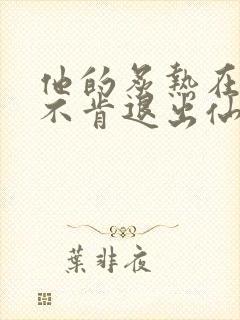 他的炙热在
不肯退出仙
葉非夜